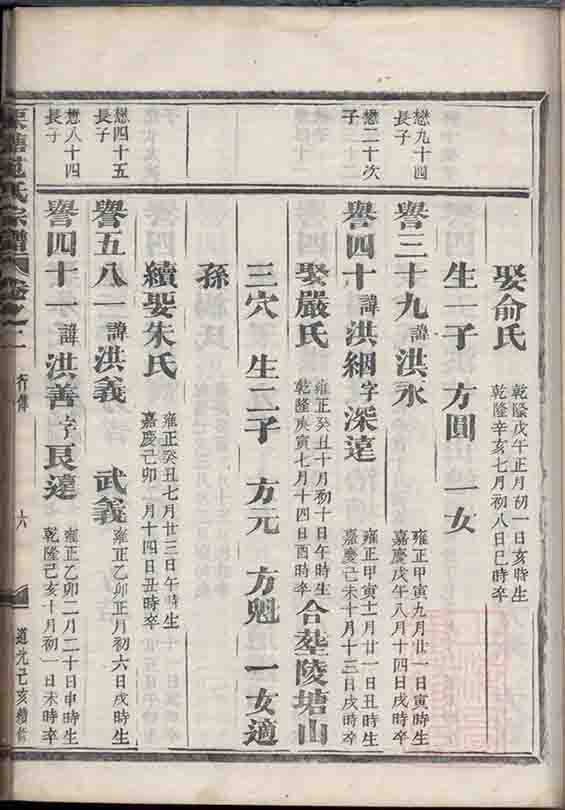 娶俞氏 乾隆戊午正月初一日亥時生 乾隆辛亥七月初八日巳時卒
生一子 方圓 一女
懋九十四長子
譽三十九 諱洪永 雍正甲寅九月廿一日寅時生 嘉慶戊午八月十四日戌時卒
懋二十次子
譽四十 諱洪綱 字深遠 雍正甲寅十一月廿一日丑時生 嘉慶己未十月十三日戌時卒
娶嚴氏 雍正癸丑十月初十日午時生 乾隆庚寅七月十四日酉時卒 合塟陵塘山
三穴 生二子 方元 方魁 一女適
孫
續娶朱氏 雍正癸丑七月廿三日午時生 嘉慶己卯 月十四日丑時卒
懋四十五長子
譽五八一 諱洪義 武義 雍正乙卯正月初六日戌時生
懋八十四長子
譽四十一 諱洪善 字良遠 雍正乙卯二月二十日申時生 乾隆己亥十月初一日未時卒
范氏宗譜 卷之二 行傳 六 道光己亥續修